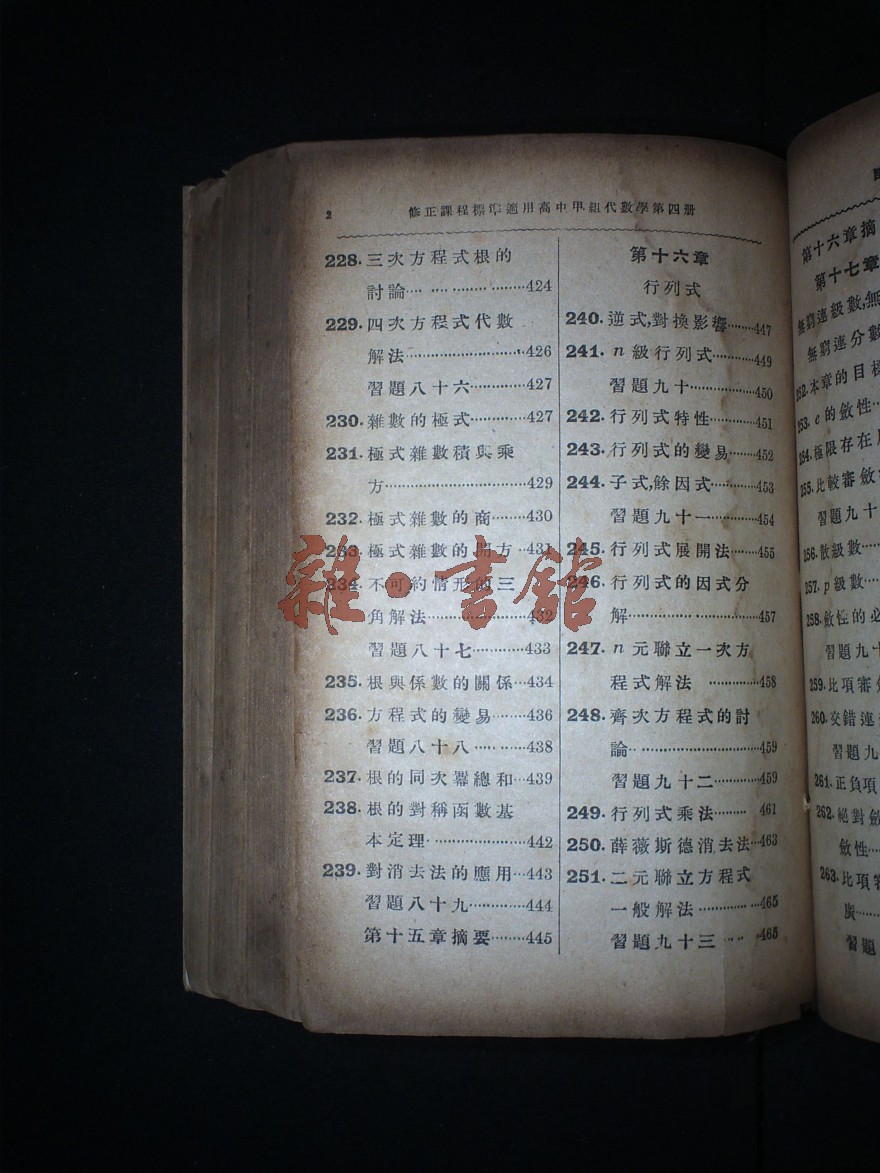 2 修正課程標準適用高中甲組代數學第四册
228. 三次方程式根的
討論 424
229. 四次方程式代數
解法 426
習題八十六 427
230. 雜數的極式 427
231. 極式雜數積與乘
方 429
232. 極式雜數的商 430
233. 極式雜數的開方 431
234. 不可約情形的三
角解法 432
習題八十七 433
235. 根與係數的關係 434
236. 方程式的變易 436
習題八十八 438
237. 根的同次羃總和 439
238. 根的對稱函數基
本定理 442
239. 對消去法的應用 443
習題八十九 444
第十五章摘要 445
第十六章
行列式
240. 逆式,對換影響 447
241. n級行列式 449
習題九十 450
242. 行列式特性 451
243. 行列式的變易 452
244. 子式,餘因式 453
習題九十一 454
245. 行列式展開法 455
246. 行列式的因式分
解 457
247. n元聯立一次方
程式解法 458
248. 齊次方程式的討
論 459
習題九十二 459
249. 行列式乘法 461
250. 薛薇斯德消去法 463
251. 二元聯立方程式
一般解法 465
習題九十三 465
雜·書館
第十六章摘
第十七章
無窮連級數,無
無窮連分數
252. 本章的目標
253. e的斂性
254. 極限存在
255. 比較審斂
習題九十
256. 散級數
257. p級數
258. 斂性的必
習題九
259. 比項審
260. 交錯連
習題九
261. 正負項
262. 絕對斂
斂性
263. 比項審
習題